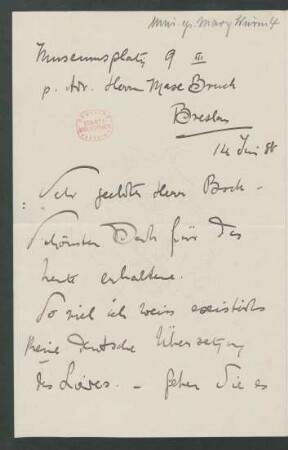 Museumsplatz 9 III
p. Adr. Herrn Max Bruch
Breslau
14 Juni 88
Sehr geehrter Herr Bock –
Schönsten Dank für das
heute erhaltene.
So viel ich weiss existirt
keine deutsche Übersetzung
des – geben Sie es